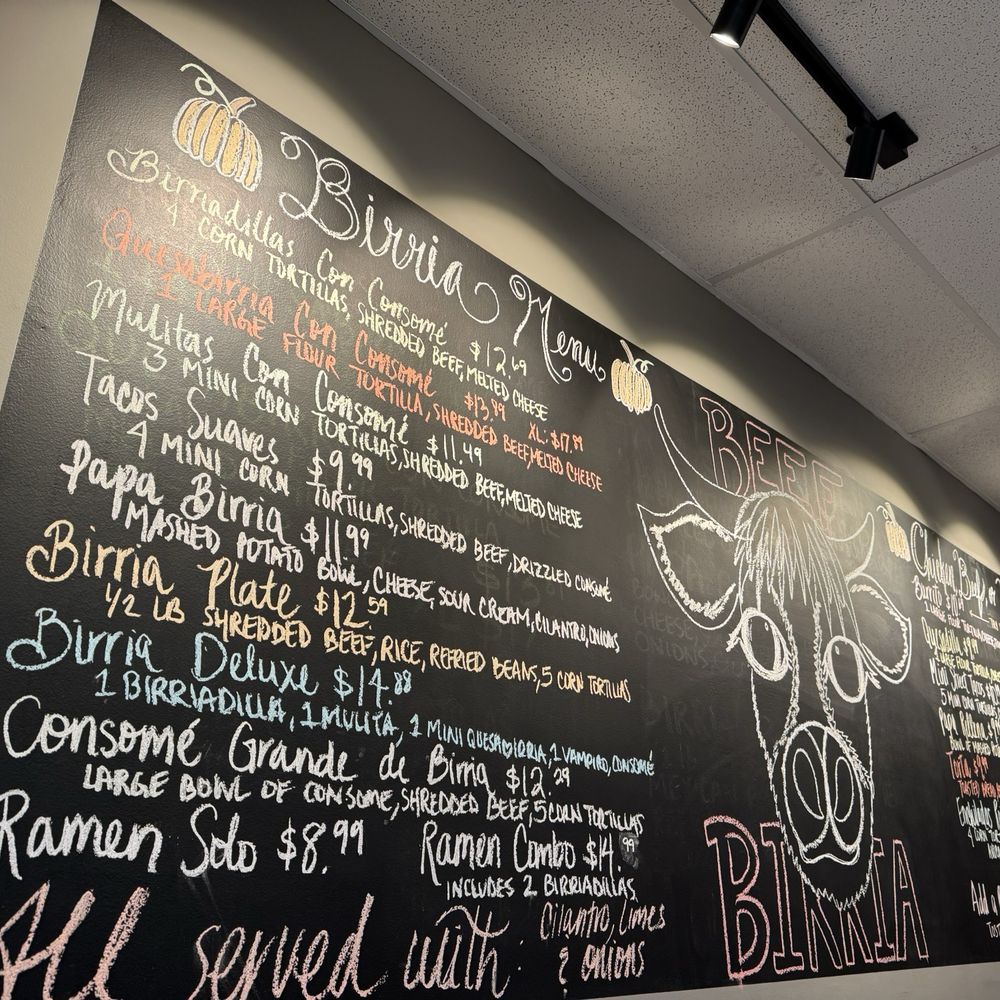 Birria Menu
Birriadillas Con Consomé $12.69
4 CORN TORTILLAS, SHREDDED BEEF, MELTED CHEESE
Quesabirria Con Consomé $13.99 XL: $17.99
1 LARGE FLOUR TORTILLA, SHREDDED BEEF, MELTED CHEESE
Mulitas Con Consomé $11.49
3 MINI CORN TORTILLAS, SHREDDED BEEF, MELTED CHEESE
Tacos Suaves $9.99
4 MINI CORN TORTILLAS, SHREDDED BEEF, DRIZZLED CONSOMÉ
Papa Birria $11.99
MASHED POTATO BOWL, CHEESE, SOUR CREAM, CILANTRO, ONIONS
Birria Plate $12.59
1/2 LB SHREDDED BEEF, RICE, REFRIED BEANS, 5 CORN TORTILLAS
Birria Deluxe $14.88
1 BIRRIADILLA, 1 MULITA, 1 MINI QUESABIRRIA, 1 VAMPIRO, CONSOMÉ
Consomé Grande de Birria $12.29
LARGE BOWL OF CONSOME, SHREDDED BEEF, 5 CORN TORTILLAS
Ramen Solo $8.99 Ramen Combo $14.99
INCLUDES 2 BIRRIADILLAS
All served with: Cilantro, Limes
& onions
BEEF
BIRRIA
Burrito
Torta